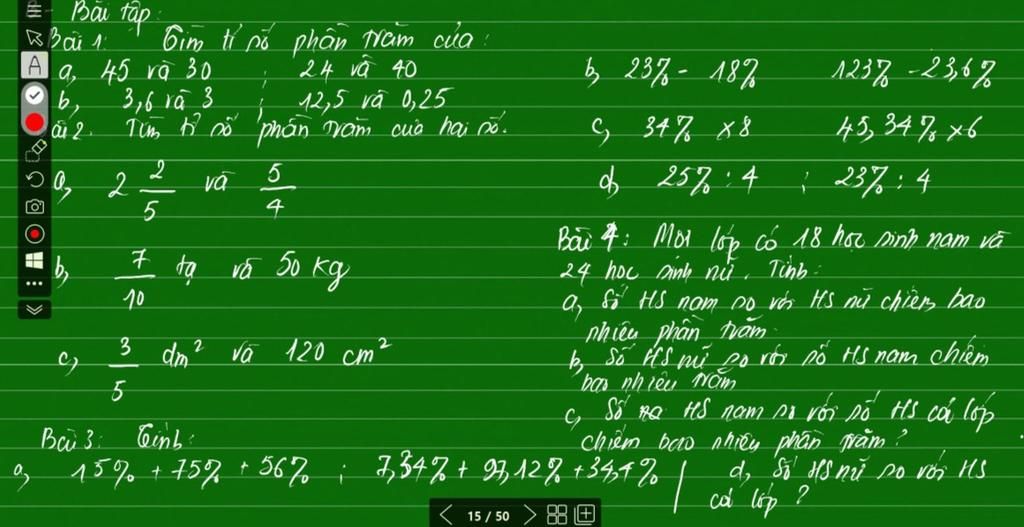 Bài tập:
Bài 1: Tìm tỉ số phần trăm của:
a, 45 và 30 ; 24 và 40
b, 3,6 và 3 ; 12,5 và 0,25
ài 2. Tìm tỉ số phần trăm của hai số.
a, 2 2/5 và 5/4
b, 7/10 tạ và 50 kg
c, 3/5 dm² và 120 cm²
Bài 3: Tính:
a, 15% + 75% + 56% ; 7,34% + 97,12% + 34,4%
b, 23% - 18% 123% - 23,6%
c, 34% x 8 45,34% x 6
d, 25% : 4 ; 23% : 4
Bài 4: Một lớp có 18 học sinh nam và
24 học sinh nữ. Tính:
a, Số HS nam so với HS nữ chiếm bao
nhiêu phần trăm
b, Số HS nữ so với số HS nam chiếm
bao nhiêu trăm
c, Số HS nam so với số HS cả lớp
chiếm bao nhiêu phần trăm?
d, Số HS nữ so với HS
cả lớp?
A
15 / 50